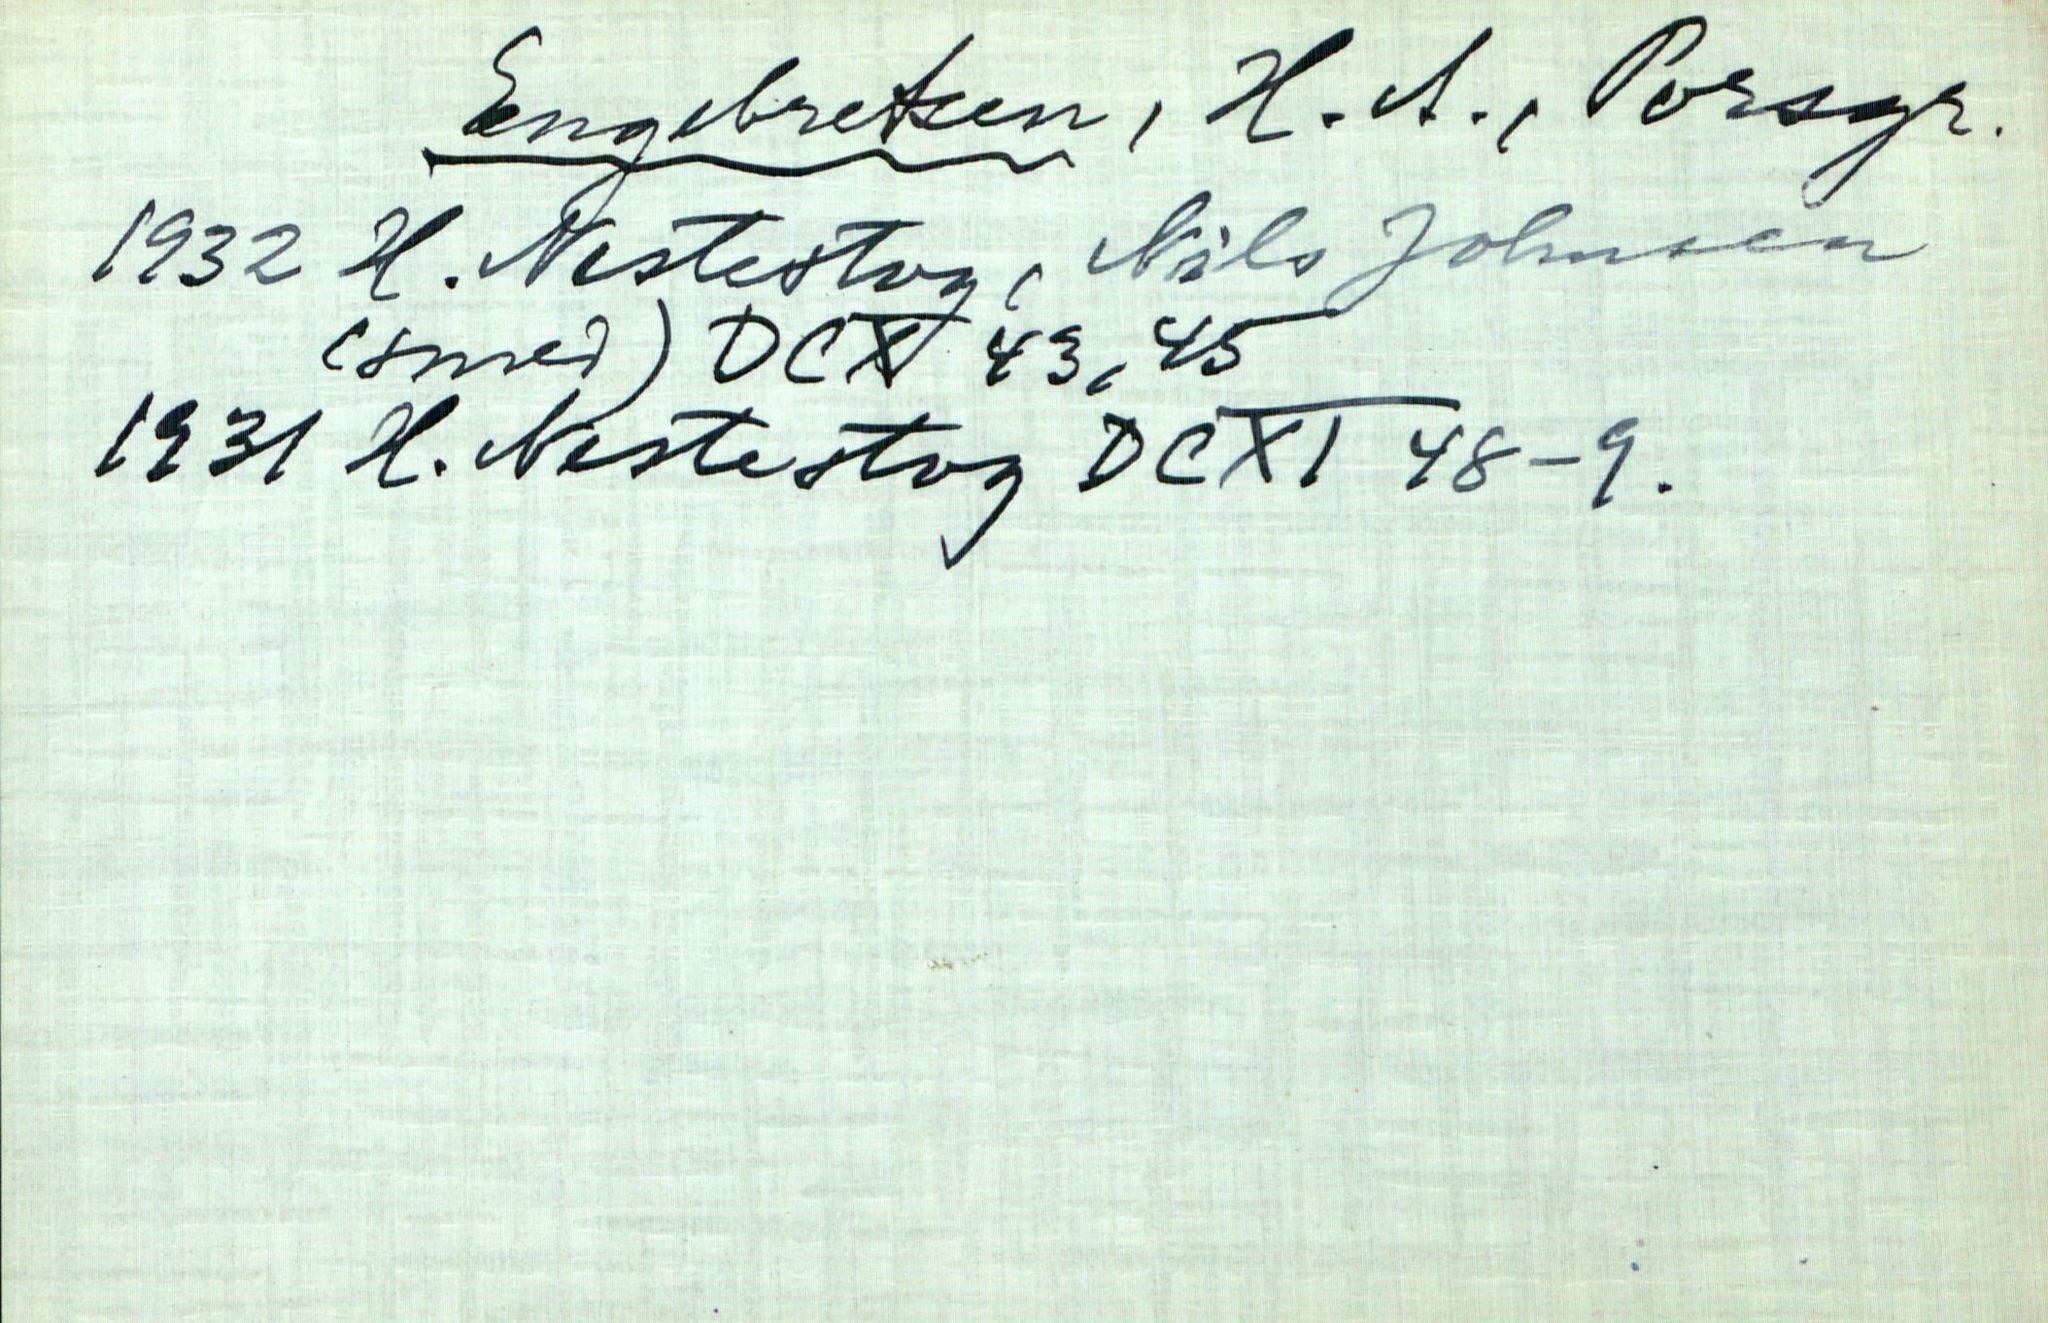 Engebretsen, H. A., Porsgr.
1932 H. Nestestog, Nils Johnsen
(smed) DCXI 43, 45
1931 H. Nestestog DCXI 48-9.